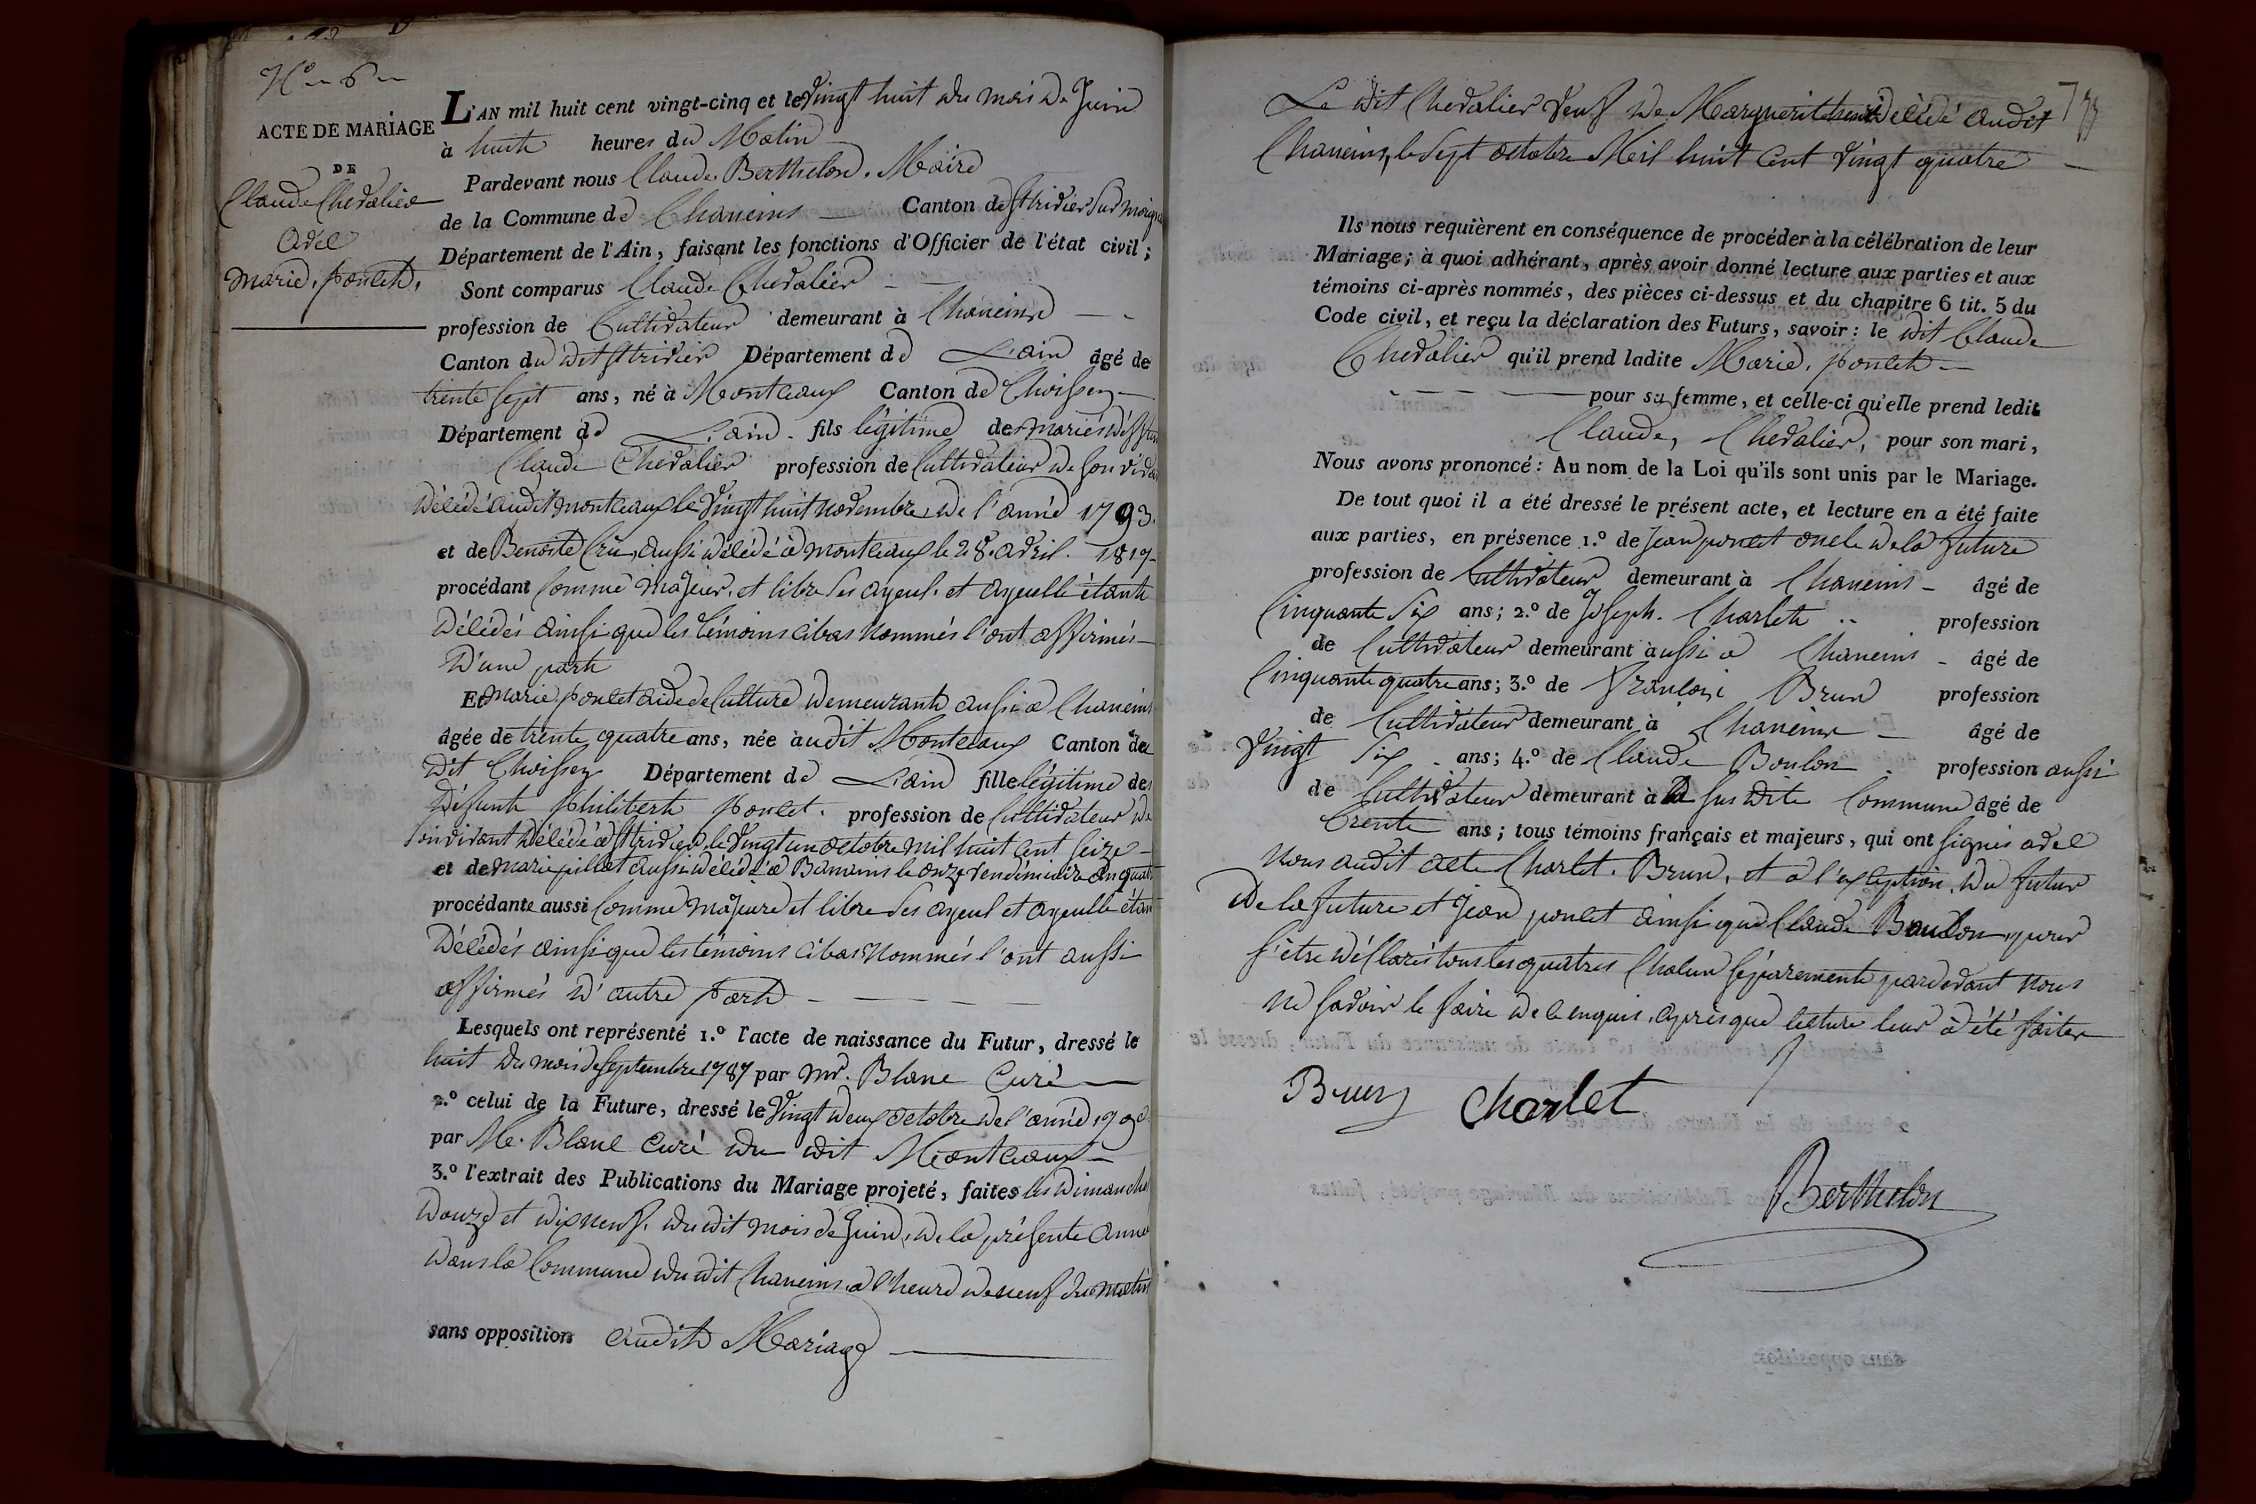 N.° 6
ACTE DE MARIAGE
DE
Claude Chevalier
avec
marie poncet
L'AN mil huit cent vingt-cinq et le vingt huit du mois de Juin
à huit heures du Matin
Pardevant nous Claude Berthelon Maire
de la Commune de Chaneins Canton de St trivier Sur Moignans
Département de l'Ain, faisant les fonctions d'Officier de l'état civil ;
Sont comparus Claude Chevalier
profession de Cultivateur demeurant à Chaneins
Canton du dit St trivier Département de L'ain âgé de
trente sept ans, né à Montceaux Canton de Thoissey
Département de L'ain fils légitime des mariés défunt
Claude Chevalier profession de Cultivateur de son vivant
décédé audit montceaux le vingt huit novembre de l'année 1793.
et de Benoite Cru, aussi décédé à montceaux le 28 avril 1819
procédant Comme majeur et libre ses ayeul et ayeulle étant
décédés ainsi que les témoins cibas nommés l'ont affirmés
d'une part
Et marie poncet aide de Culture demeurant aussi a Chaneins
âgée de trente quatre ans, née audit Montceaux Canton du
dit Thoissey Département de L'ain fille légitime de
défunt philibert poncet profession de Cultivateur de
son vivant décédé a St trivier le vingt un octobre mil huit cent seize
et de marie pillet aussi décédé à Baneins le onze vendémiaire an quatre
procédante aussi Comme majeure et libre ses ayeul et ayeulle étant
décédés ainsi que les témoins cibas nommés l'ont aussi
affirmés d'autre part
Lesquels ont représenté 1.° l'acte de naissance du Futur, dressé le
huit du mois de septembre 1787 par mr. Blanc Curé
2.° celui de la Future, dressé le vingt deux octobre de l'année 1790
par Mr. Blanc Curé du dit Montceaux
3.° l'extrait des Publications du Mariage projeté, faites les dimanche
douze et dixneuf du dit mois de Juin, de la présente année
dans la Commune du dit Chaneins a l'heure de neuf du matin
sans opposition audit Mariage
Le dit Chevalier veuf de Marguerit décédé audit
Chaneins, le sept octobre Mil huit Cent vingt quatre
Ils nous requièrent en conséquence de procéder à la célébration de leur
Mariage ; à quoi adhérant, après avoir donné lecture aux parties et aux
témoins ci-après nommés, des pièces ci-dessus et du chapitre 6 tit. 5 du
Code civil, et reçu la déclaration des Futurs, savoir : le dit Claude
Chevalier qu'il prend ladite Marie poncet
pour sa femme, et celle-ci qu'elle prend ledit
Claude Chevalier, pour son mari,
Nous avons prononcé : Au nom de la Loi qu'ils sont unis par le Mariage.
De tout quoi il a été dressé le présent acte, et lecture en a été faite
aux parties, en présence 1.° de Jean poncet oncle de la future
profession de Cultivateur demeurant à Chaneins âgé de
Cinquante Six ans ; 2.° de Joseph Charlet profession
de Cultivateur demeurant aussi a Chaneins âgé de
Cinquante quatre ans ; 3.° de François Brun profession
de Cultivateur demeurant à Chaneins âgé de
Vingt Six ans ; 4.° de Claude Boulon profession aussi
de Cultivateur demeurant à la sus dite Commune âgé de
trente ans ; tous témoins français et majeurs, qui ont signés avec
nous audit acte Charlet, Brun, et a l'exception du futur
de la future et Jean poncet ainsi que Claude Boulon, pour
s'être déclarés tous les quatres Chacun séparement pardevant nous
ne savoir le faire de ce enquis, après que lecture leur à été faite
Brun Charlet
Berthelon